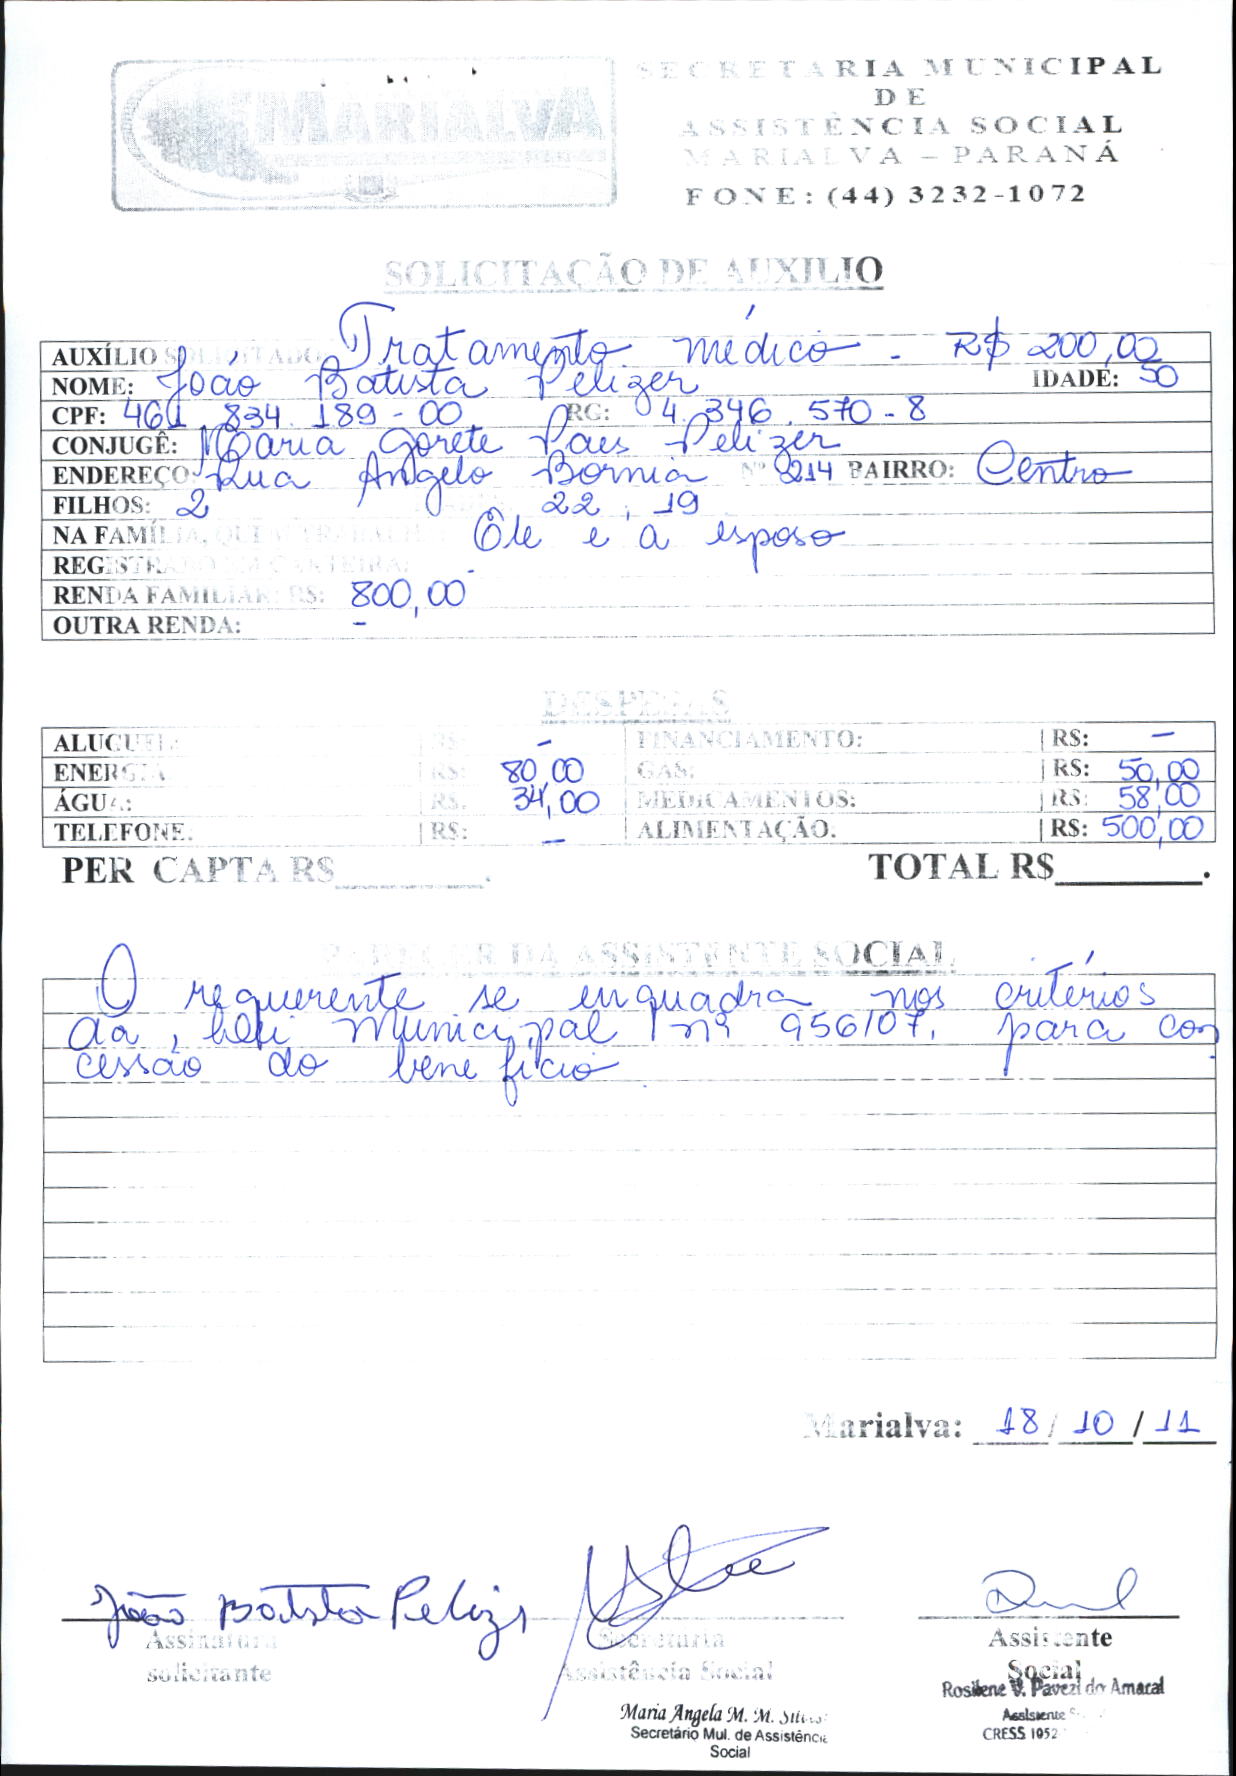 MARIALVA
SECRETARIA MUNICIPAL
DE
ASSISTÊNCIA SOCIAL
MARIALVA – PARANÁ
FONE: (44) 3232-1072
SOLICITAÇÃO DE AUXILIO
AUXÍLIO SOLICITADO: Tratamento médico - R$ 200,00
NOME: João Batista Pelizer IDADE: 50
CPF: 461.834.189-00 RG: 4.346.570-8
CONJUGÊ: Maria Gorete Paes Pelizer
ENDEREÇO: Rua Angelo Bornia Nº 214 BAIRRO: Centro
FILHOS: 2 22, 19
NA FAMÍLIA, QUEM TRABALHA Ele e a esposo
REGISTRADO EM CARTEIRA:
RENDA FAMILIAR: R$: 800,00
OUTRA RENDA: -
DESPESAS
ALUGUEL: R$: - FINANCIAMENTO: R$: -
ENERGIA R$: 80,00 GAS: R$: 50,00
ÁGUA: R$: 34,00 MEDICAMENTOS: R$: 58,00
TELEFONE: R$: - ALIMENTAÇÃO: R$: 500,00
PER CAPTA R$________. TOTAL R$________.
PARECER DA ASSISTENTE SOCIAL
O requerente se enquadra nos critérios
da Lei Municipal nº 956/07, para con
cessão do benefício.
Marialva: 18/10/11
João Batista Pelizer
Assinatura Secretaria Assistente
solicitante Assistência Social Social
Rosilene V. Pavezi do Amaral
Maria Angela M. M. Assistente
Secretário Mul. de Assistência CRESS 1952
Social